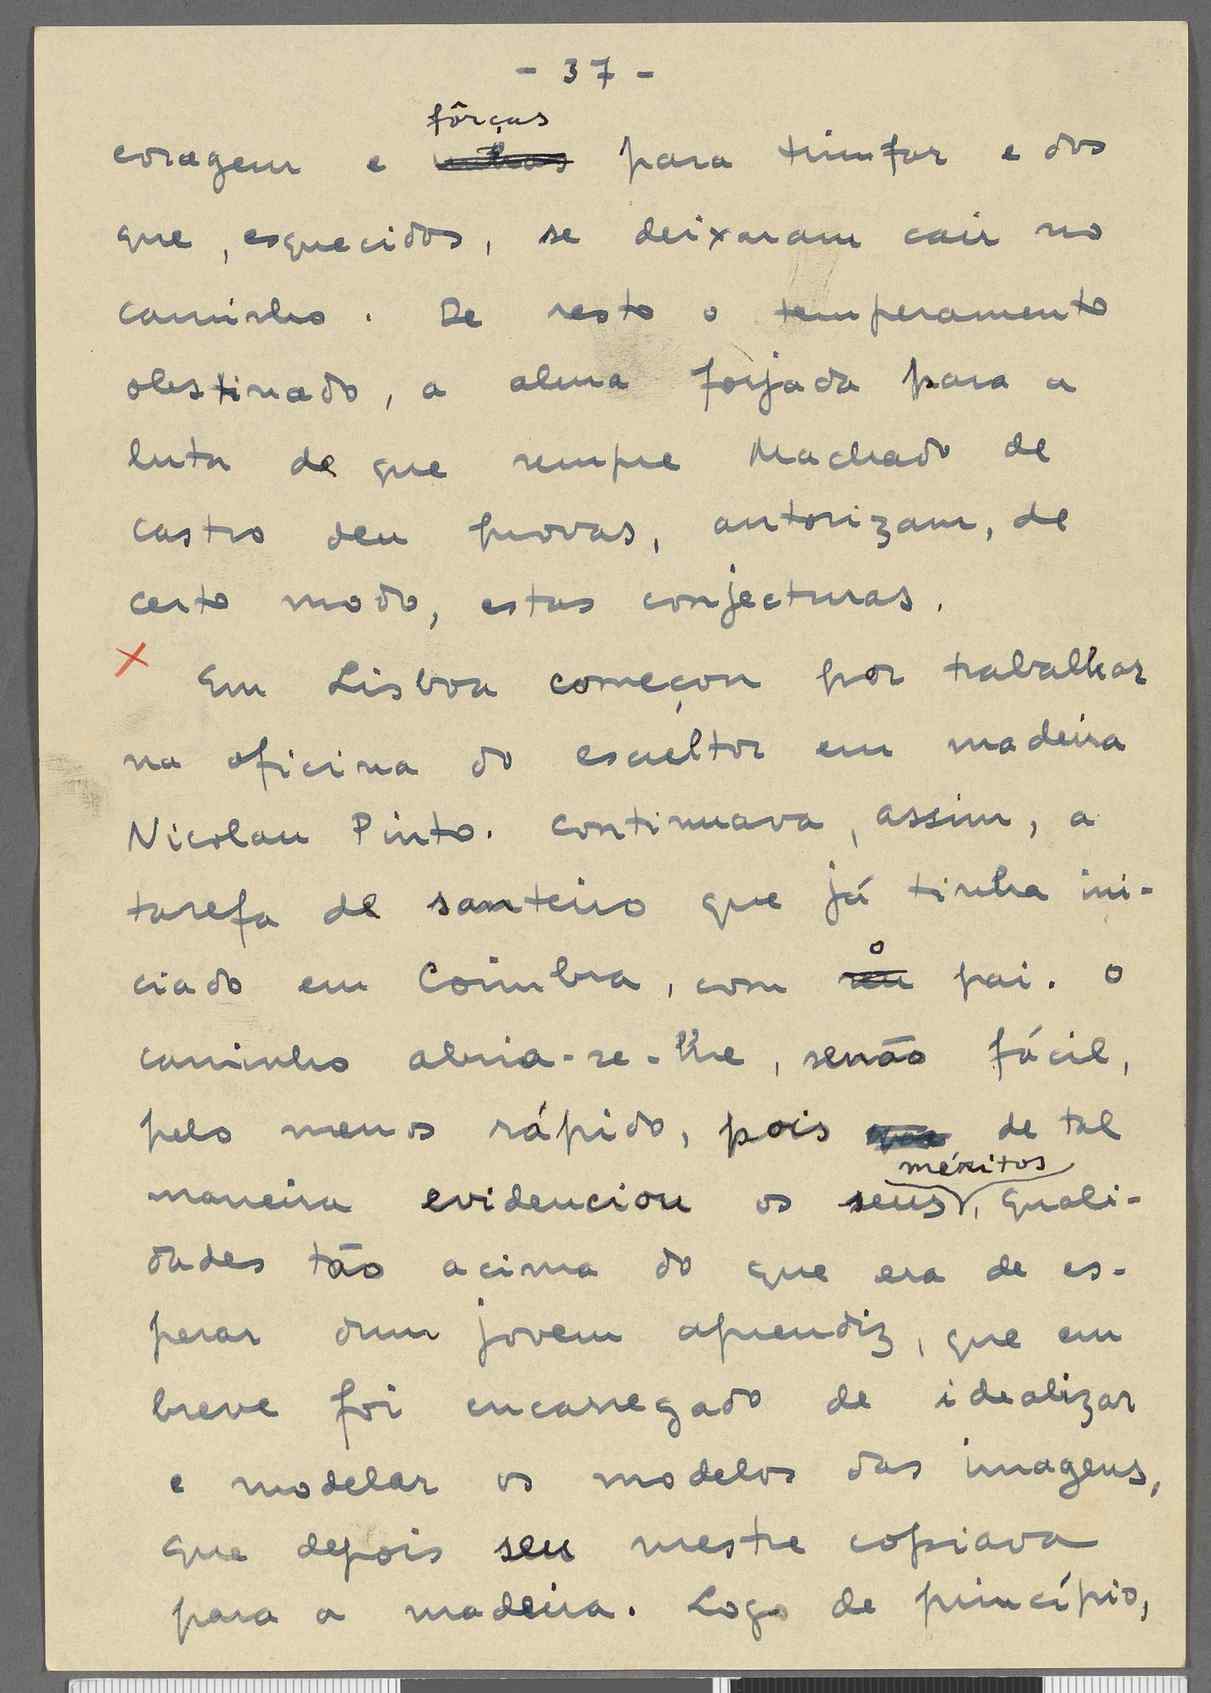 - 37 -
fôrças
coragem e para triunfar e dos
que, esquecidos, se deixaram cair no
caminho. De resto o temperamento
obstinado, a alma forjada para a
luta de que sempre Machado de
Castro deu provas, autorizam, de
certo modo, estas conjecturas.
x Em Lisboa começou por trabalhar
na oficina do escultor em madeira
Nicolau Pinto. Continuava, assim, a
tarefa de santeiro que já tinha ini-
o
ciado em Coimbra, com seu pai. O
caminho abria-se-lhe, senão fácil,
pelo menos rápido, pois de tal
méritos
maneira evidenciou os seus, quali-
dades tão acima do que era de es-
perar dum jovem aprendiz, que em
breve foi encarregado de idealizar
e modelar os modelos das imagens,
que depois seu mestre copiava
para a madeira. Logo de princípio,